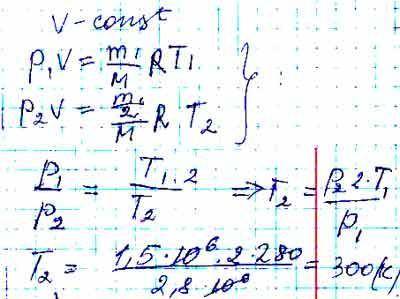 V - const
p₁V = m₁/M RT₁
p₂V = (m₁/2)/M R T₂
P₁/P₂ = T₁·2/T₂ => T₂ = P₂ 2·T₁/P₁
T₂ = 1,5·10⁶·2·280/2,8·10⁶ = 300(K)